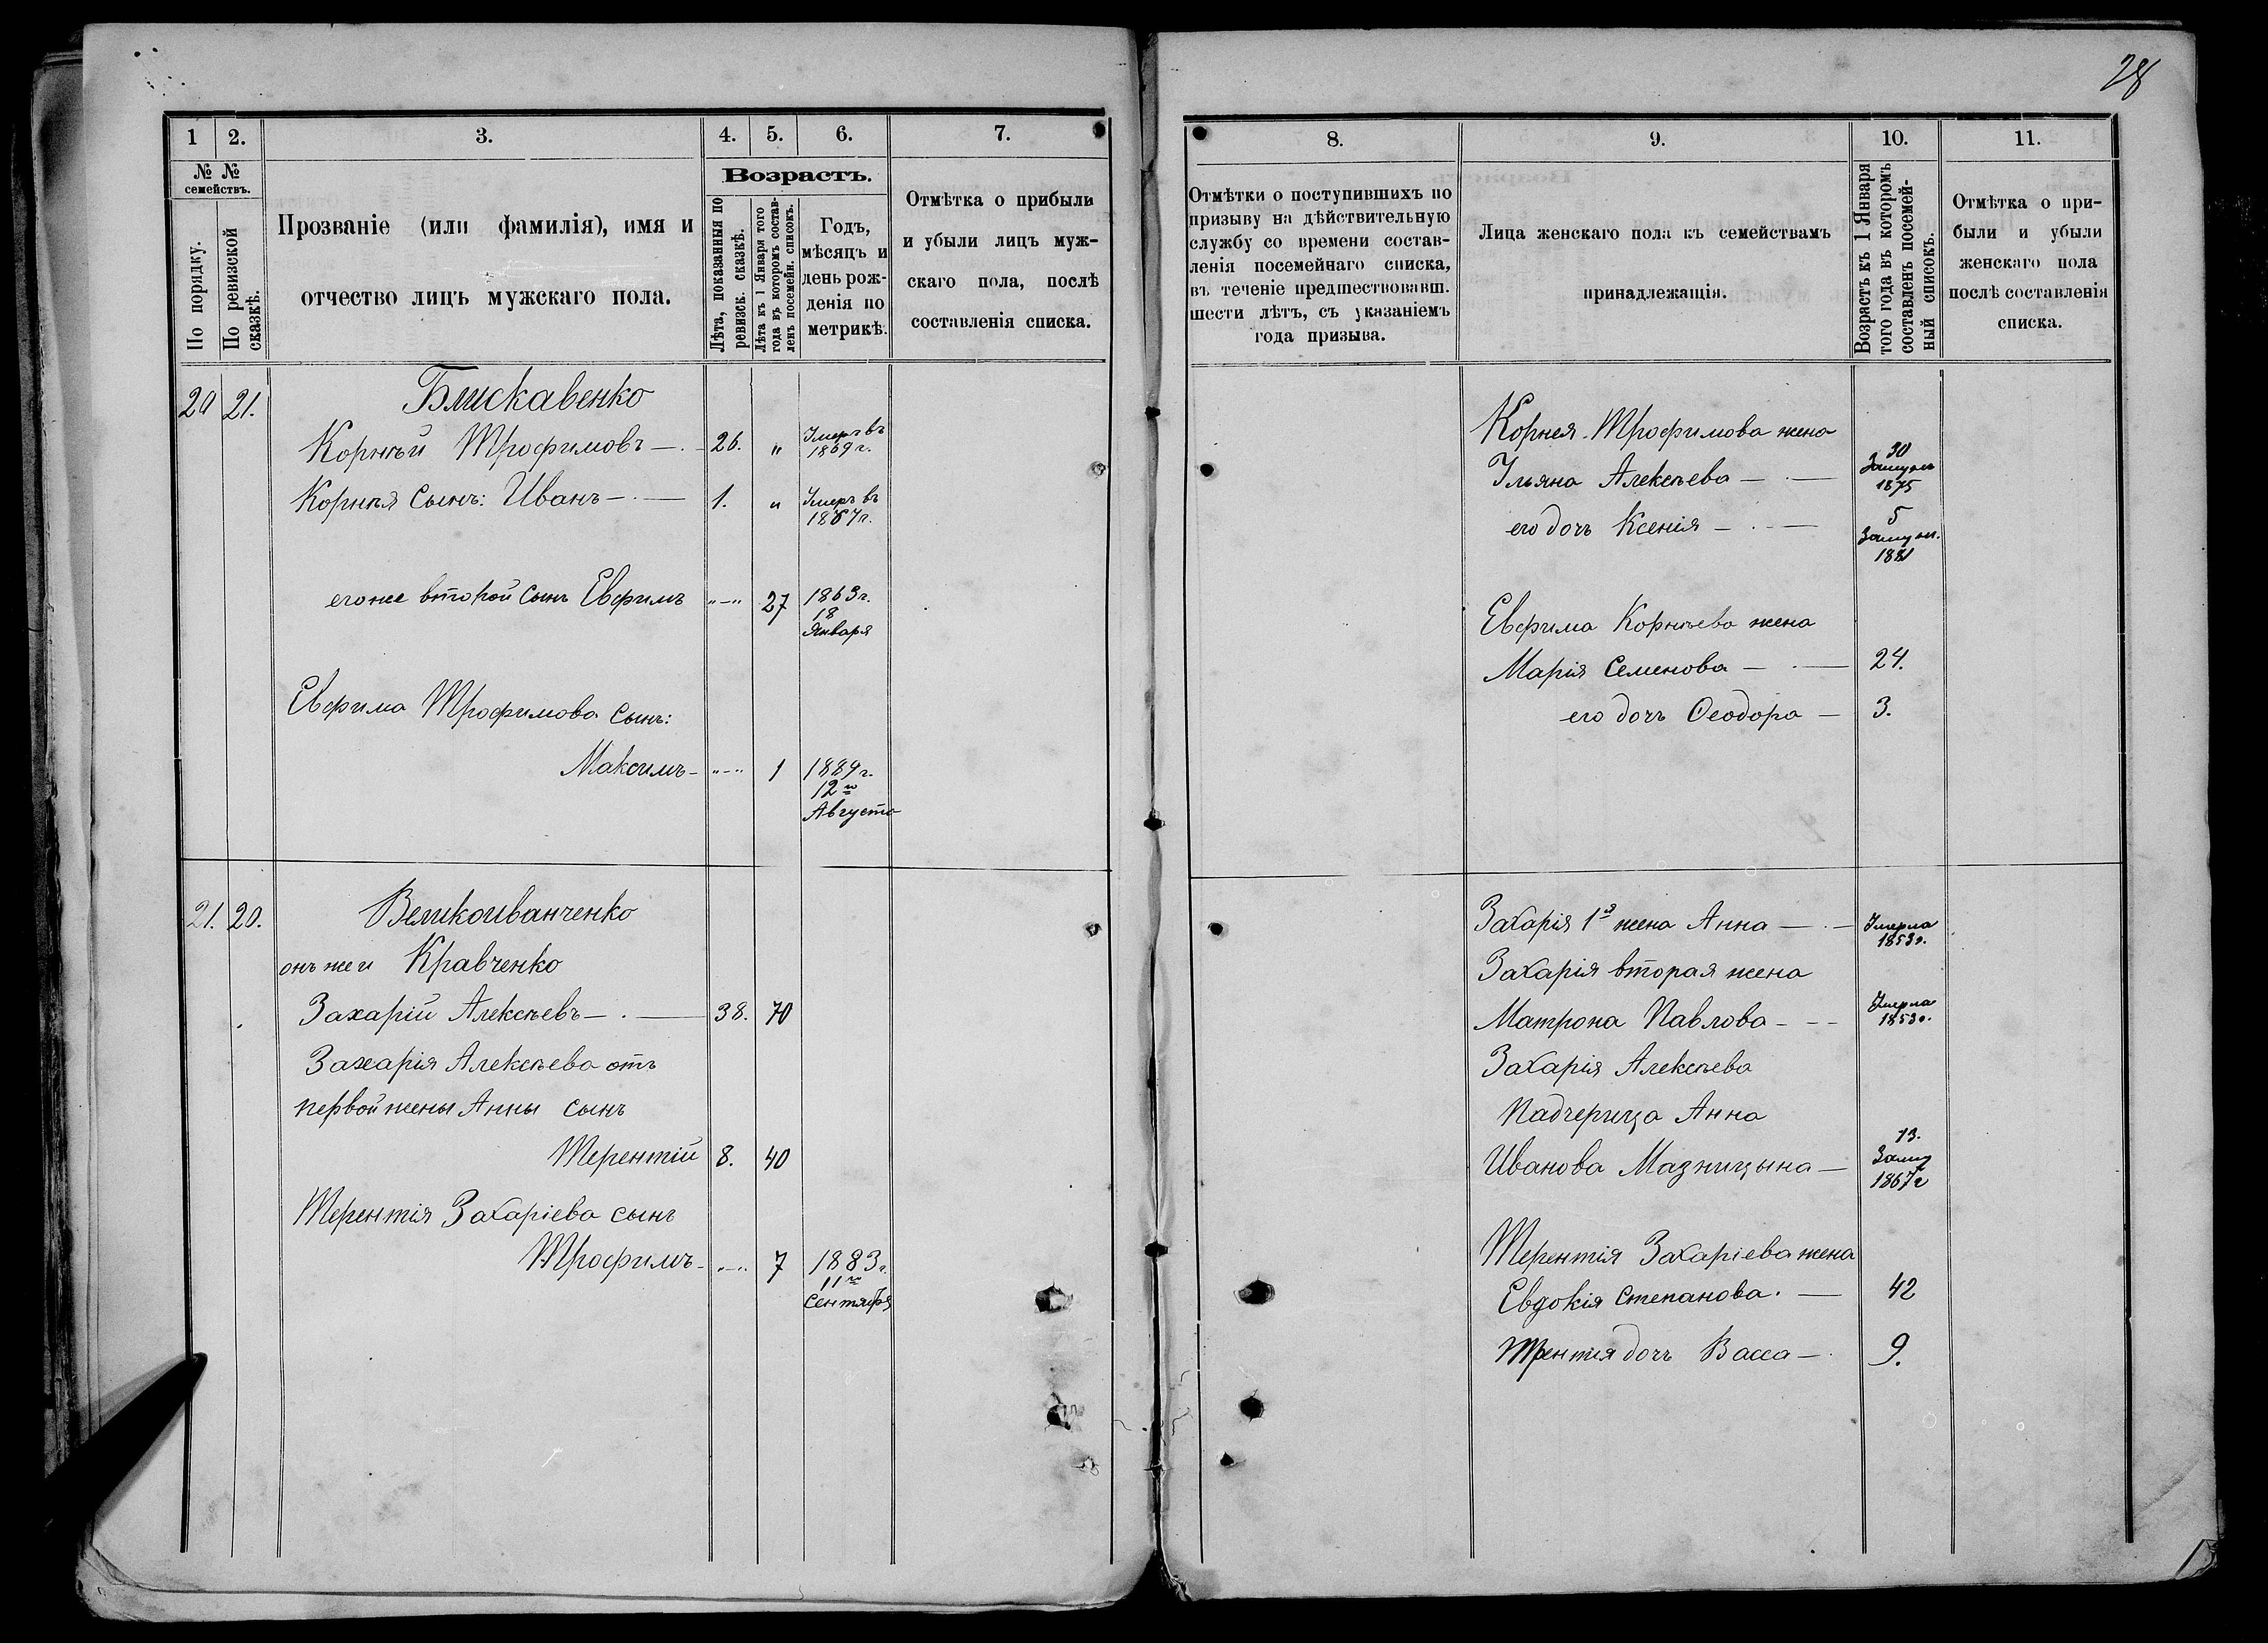 28
1 2. 3. 4. 5. 6. 7.
№ №
семействъ.
По порядку.
По ревизской
сказкѣ.
Прозваніе (или фамилія), имя и
отчество лицъ мужскаго пола.
Возрастъ.
Лѣта, показанныя по
ревизск. сказкѣ.
Лѣта къ 1 Января того
года въ которомъ состав-
ленъ посемейн. списокъ.
Годъ,
мѣсяцъ и
день рож-
денія по
метрикѣ.
Отмѣтка о прибыли
и убыли лицъ муж-
скаго пола, послѣ
составленія списка.
20 21. Блискавенко
Корнѣй Трофимовъ — 26. „ Умеръ въ
1869 г.
Корнѣя сынъ: Иванъ — 1. „ Умеръ въ
1867 г.
его же второй сынъ Евфимъ „—„ 27 1863 г.
18
Января
Евфима Трофимова сынъ:
Максимъ „—„ 1 1889 г.
12го
Августа
21. 20. Великоиванченко
онъ же и Кравченко
Захарій Алексѣевъ — 38. 70
Захарія Алексѣева отъ
первой жены Анны сынъ
Терентій 8. 40
Терентія Захаріева сынъ
Трофимъ „—„ 7 1883 г.
11го
Сентября
8. 9. 10. 11.
Отмѣтки о поступившихъ по
призыву на дѣйствительную
службу со времени состав-
ленія посемейнаго списка,
въ теченіе предшествовавш.
шести лѣтъ, съ указаніемъ
года призыва.
Лица женскаго пола къ семействамъ
принадлежащія.
Возрастъ къ 1 Января
того года въ которомъ
составленъ посемей-
ный списокъ.
Отмѣтка о при-
были и убыли
женскаго пола
послѣ составленія
списка.
Корнея Трофимова жена
Ульяна Алексѣева — 30
Замужъ
1875
его дочь Ксенія — 5
Замуж.
1881
Евфима Корнѣева жена
Марія Семенова — 24.
его дочь Ѳеодора — 3.
Захарія 1я жена Анна — Умерла
1853 г.
Захарія вторая жена
Матрона Павлова — Умерла
1853 г.
Захарія Алексѣева
Падчерица Анна
Иванова Мазницына — 13.
Замуж
1867 г
Терентія Захаріева жена
Евдокія Степанова. — 42
Трентія дочь Васса — 9.